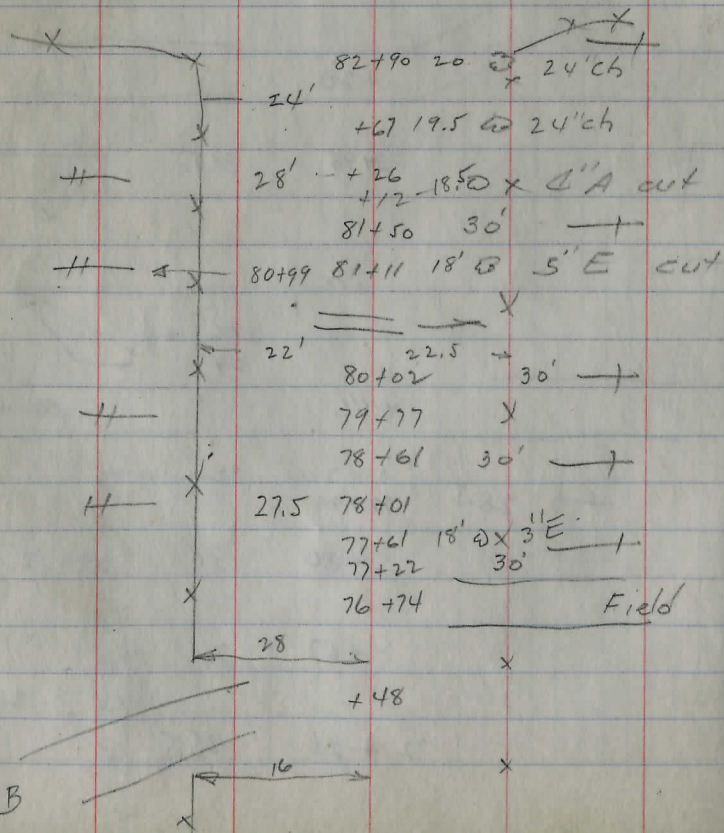 82+90 20 24'ch
24'
+67 19.5 24"ch
28' + 26
+12 18.5 4"A cut
81+50 30'
80+99 81+11 18' 5"E cut
22' 22.5
80+02 30'
79+77
78+61 30'
27.5 78+01
77+61 18' 3"E
77+22 30'
76+74 Field
28
+48
16
B